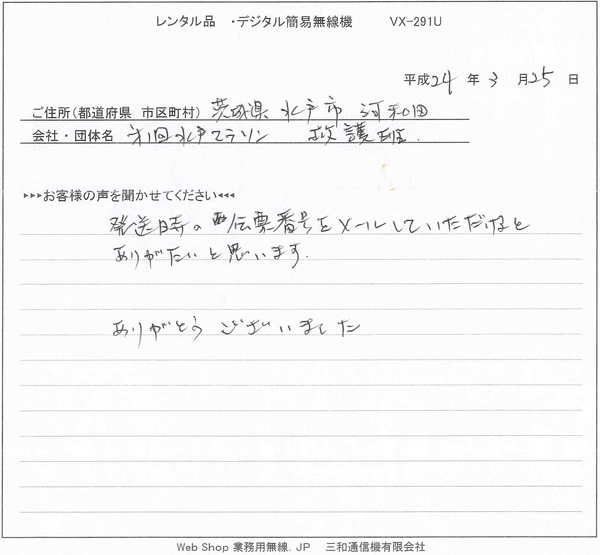 レンタル品 ・デジタル簡易無線機 VX-291U
平成24年3月25日
ご住所(都道府県 市区町村) 茨城県 水戸市 河和田
会社・団体名 第1回水戸マラソン 救護班.
▶▶▶お客様の声を聞かせてください◀◀◀
発送時の 伝票番号をメールしていただけると
ありがたいと思います.
ありがとうございました
Web Shop 業務用無線. JP 三和通信機有限会社